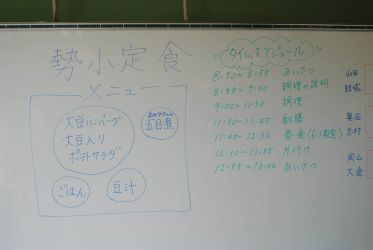 勢小定食
メニュー
大豆ハンバーグ
大豆入り
ポテトサラダ
五目煮
ごはん
豆汁
"タイムスケジュール"
8:50~ 8:55 あいさつ
8:55~ 9:00 調理の説明
9:00~ 11:30 調理
11:30~ 11:45
11:45~ 12:30
12:30~ 12:55 片付け
12:55~ 13:00 あいさつ
山田
奥田
志村
岡山
大倉